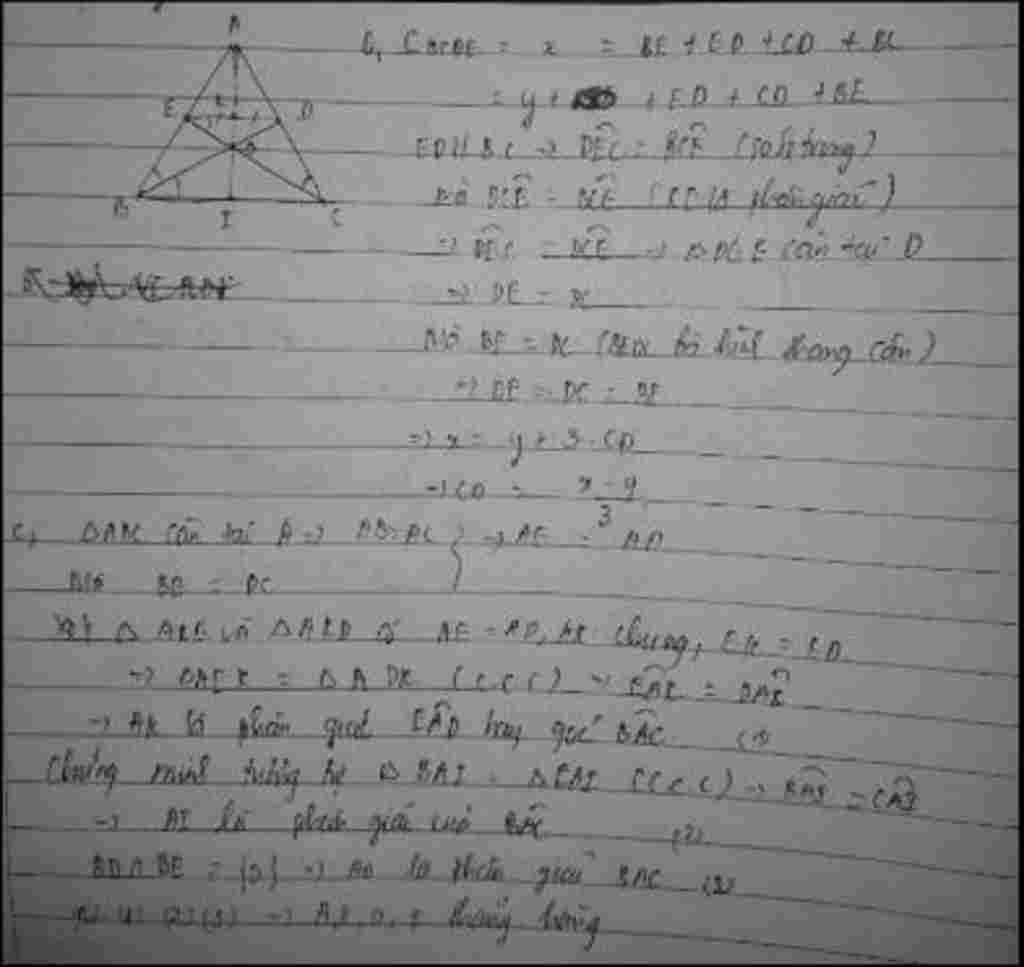 A
E
D
B
I
C
b, C BCDE = x = BE + ED + CD + BC
= y + + ED + CD + BE
ED // BC → DÊC = BCÊ (so le trong)
Mà DCÊ = BCÊ (CE là phân giác)
⇒ DÊC = DCÊ → △DCE cân tại D
⇒ DE = DC
Mà BE = DC (BEDC là hình thang cân)
⇒ DE = DC = BE
⇒ x = y + 3 . CD
→ CD = x - y
3
c, △ABC cân tại A ⇒ AB = AC } → AE = AD
Mà BE = DC
Xét △AKE và △AKD có AE = AD, AK chung, EK = KD
⇒ △AEK = △ADK (c c c) → EAK = DAK
→ AK là phân giác EAD hay góc BAC (1)
Chứng minh tương tự △BAI = △CAI (c c c) → BAI = CAI
→ AI là phân giác của BAC (2)
= {O} ⇒ AO là phân giác BAC (3)
(1) (2) (3) → thẳng hàng